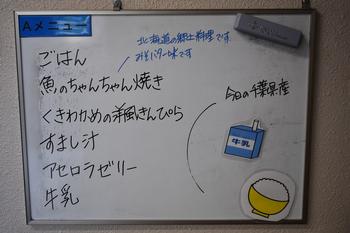 Aメニュー
北海道の郷土料理です
みそバター味です
ごはん
魚のちゃんちゃん焼き
くきわかめの洋風きんぴら
すまし汁
アセロラゼリー
牛乳
今日の千葉県産
牛乳